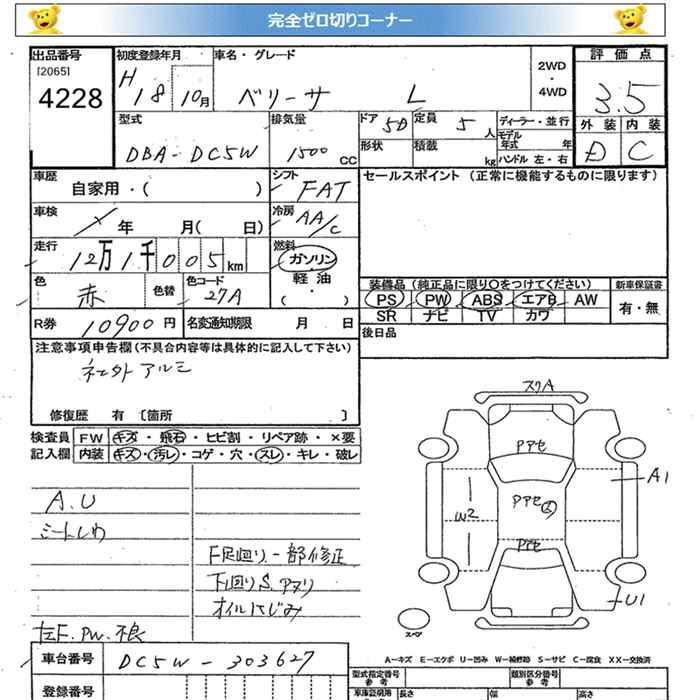 完全ゼロ切りコーナー
出品番号
[2065]
4228
初度登録年月
H 18 10月
車名・グレード
ベリーサ L
2WD
・
4WD
評価点
3.5
外装 内装
D C
型式
DBA-DC5W
排気量
1500 CC
ドア 5D
形状
定員 5 人
積載 kg
ディーラー・並行
モデル年式 年
ハンドル 左・右
車歴
自家用・( )
シフト
FAT
セールスポイント (正常に機能するものに限ります)
車検
年 月( 日)
冷房
AA/C
走行
12万1千005km
燃料
ガソリン
軽油
・
( )
色
赤
色替
色コード
27A
装備品 (純正品に限り○をつけてください)
新車保証書
PS PW ABS エアB AW
有・無
SR ナビ TV カワ
R券 10900円
名変通知期限 月 日
後日品
注意事項申告欄 (不具合内容等は具体的に記入して下さい)
社外アルミ
修復歴 有 〔箇所 〕
検査員 FW キズ・飛石・ヒビ割・リペア跡・×要
記入欄 内装 キズ・汚レ・コゲ・穴・スレ・キレ・破レ
A.U
シートしわ
F足廻り一部修正
下廻りS.アヌリ
オイルにじみ
左F.PW.不良
スリA
Pアセ
Pアセ
Pアセ
W2
A1
U1
スペア
車台番号
DC5W-303627
登録番号
A-キズ E-エクボ U-凹み W-補修跡 S-サビ C-腐食 XX-交換済
型式指定番号
参考
類別区分番号
参考
車庫証明用
参考
長さ
幅
高さ